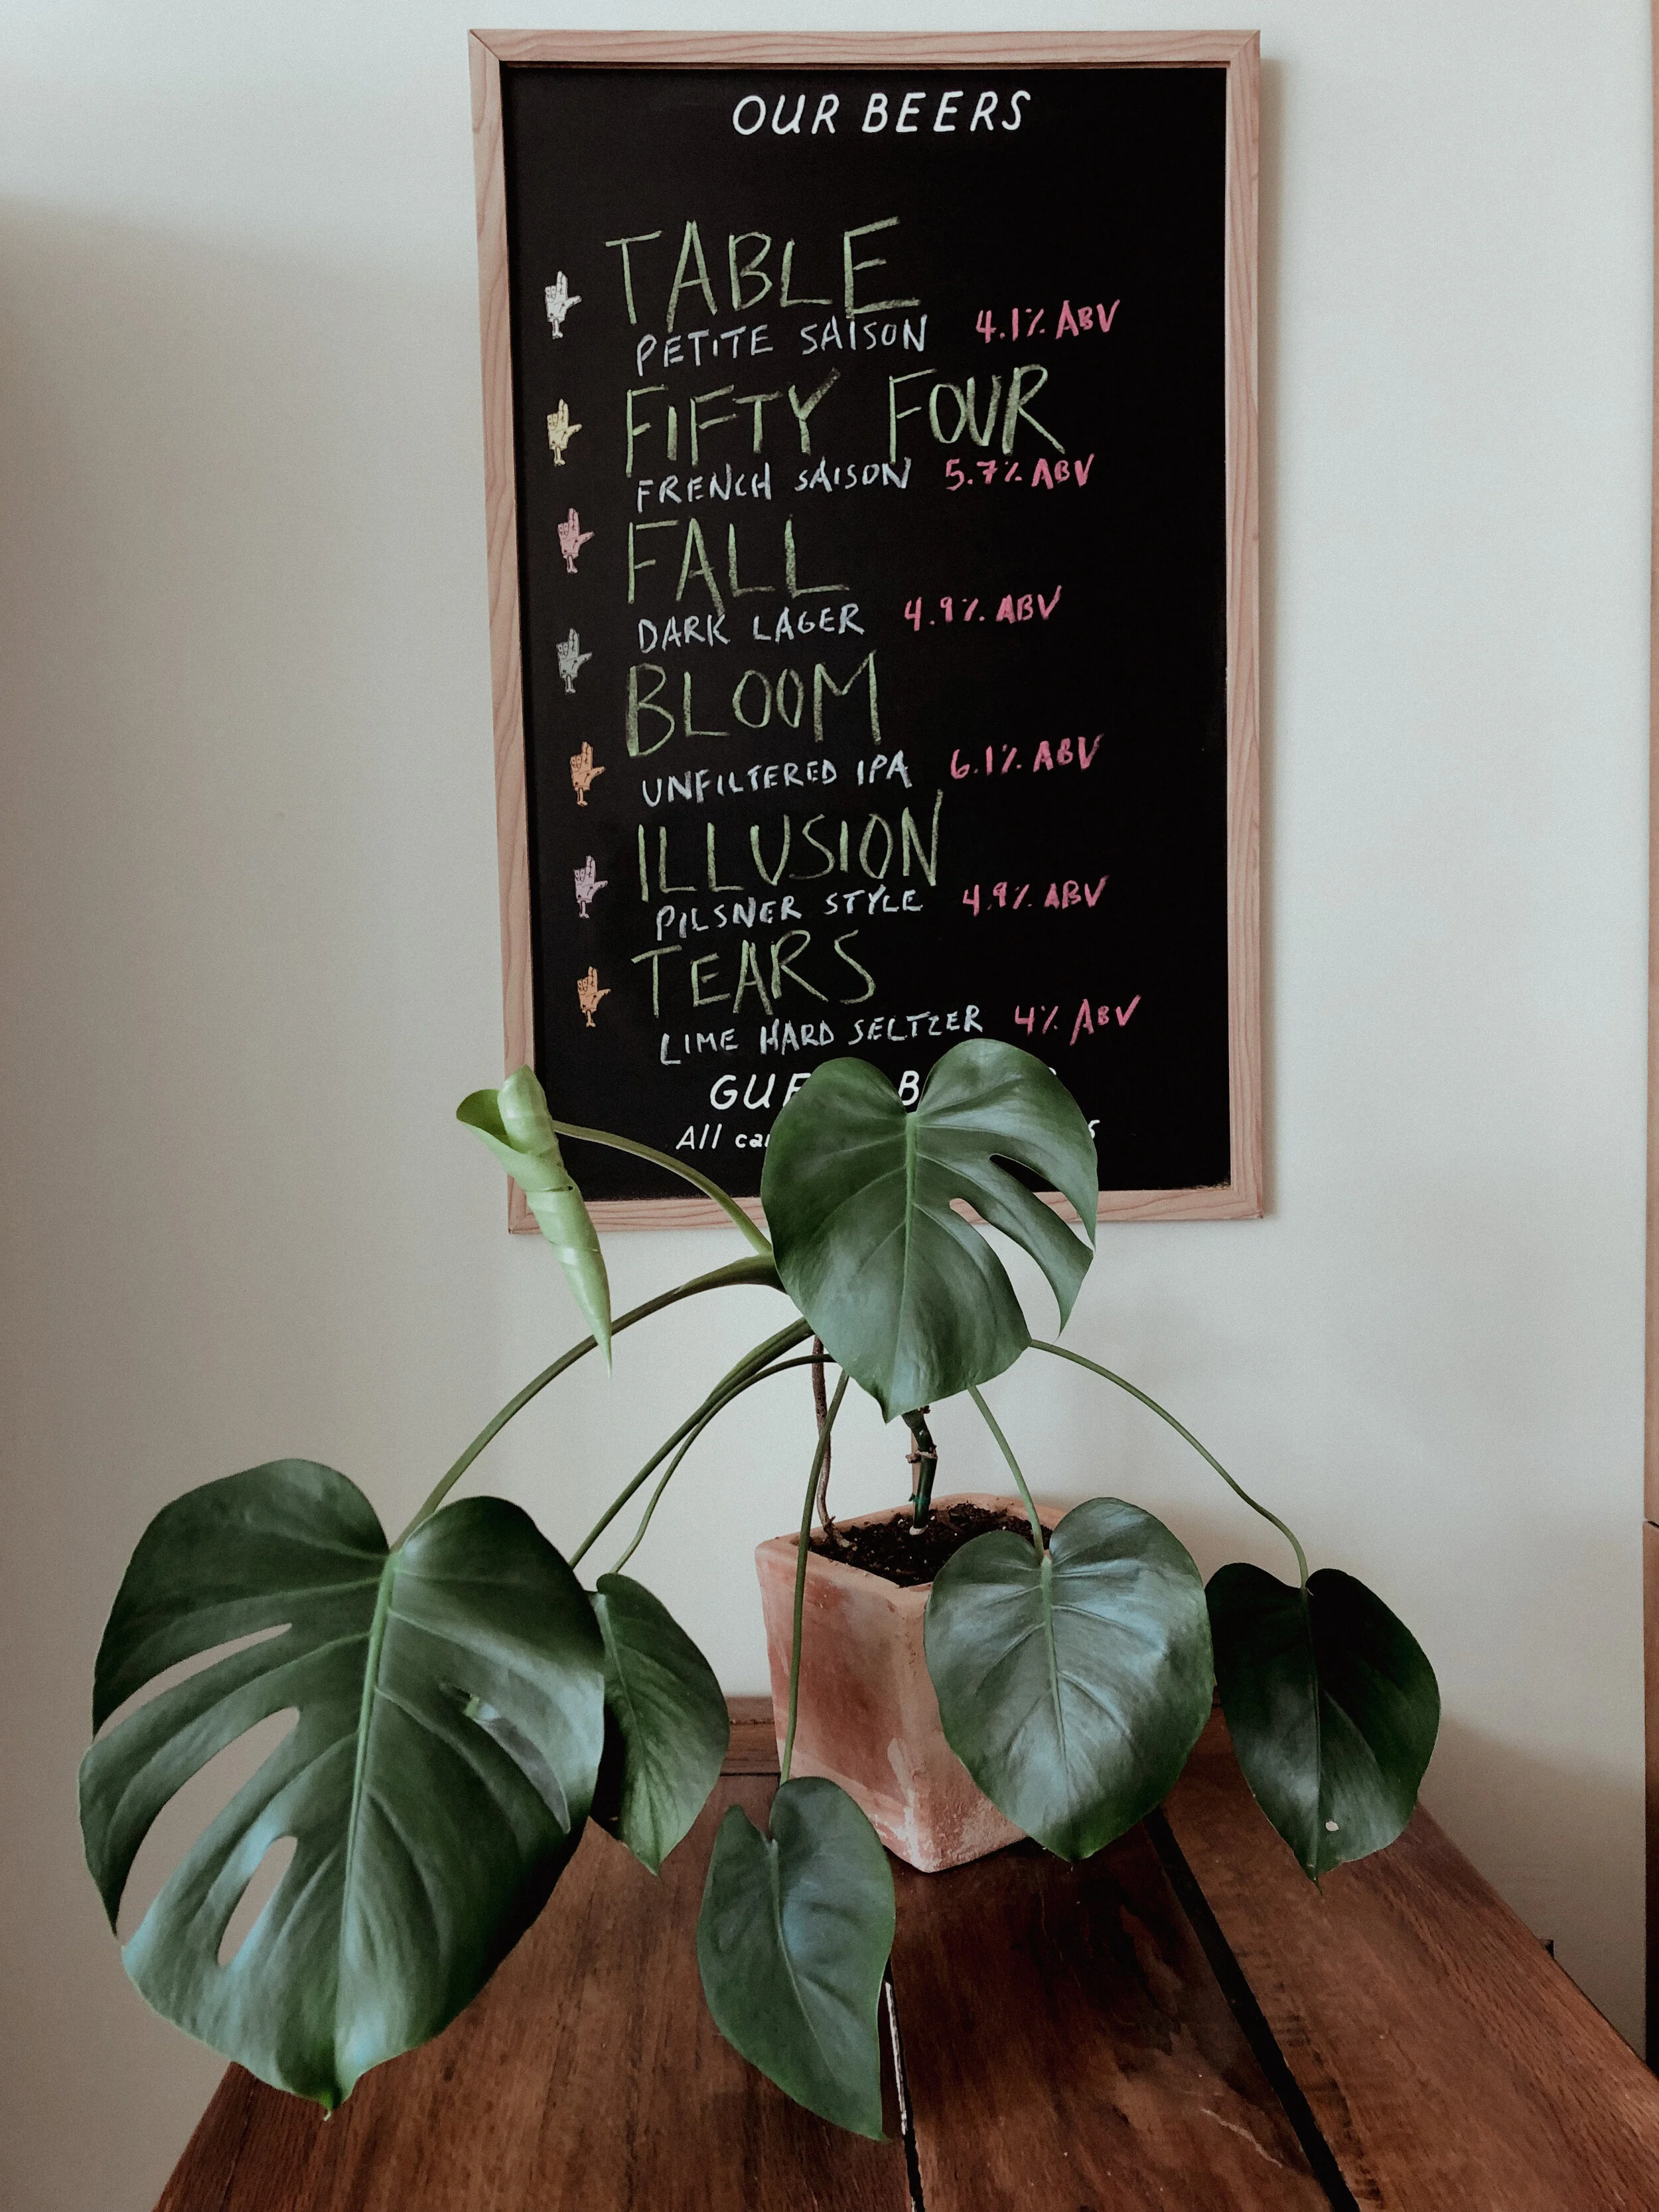 OUR BEERS
TABLE
PETITE SAISON 4.1% ABV
FIFTY FOUR
FRENCH SAISON 5.7% ABV
FALL
DARK LAGER 4.9% ABV
BLOOM
UNFILTERED IPA 6.1% ABV
ILLUSION
PILSNER STYLE 4.9% ABV
TEARS
LIME HARD SELTZER 4% ABV
All